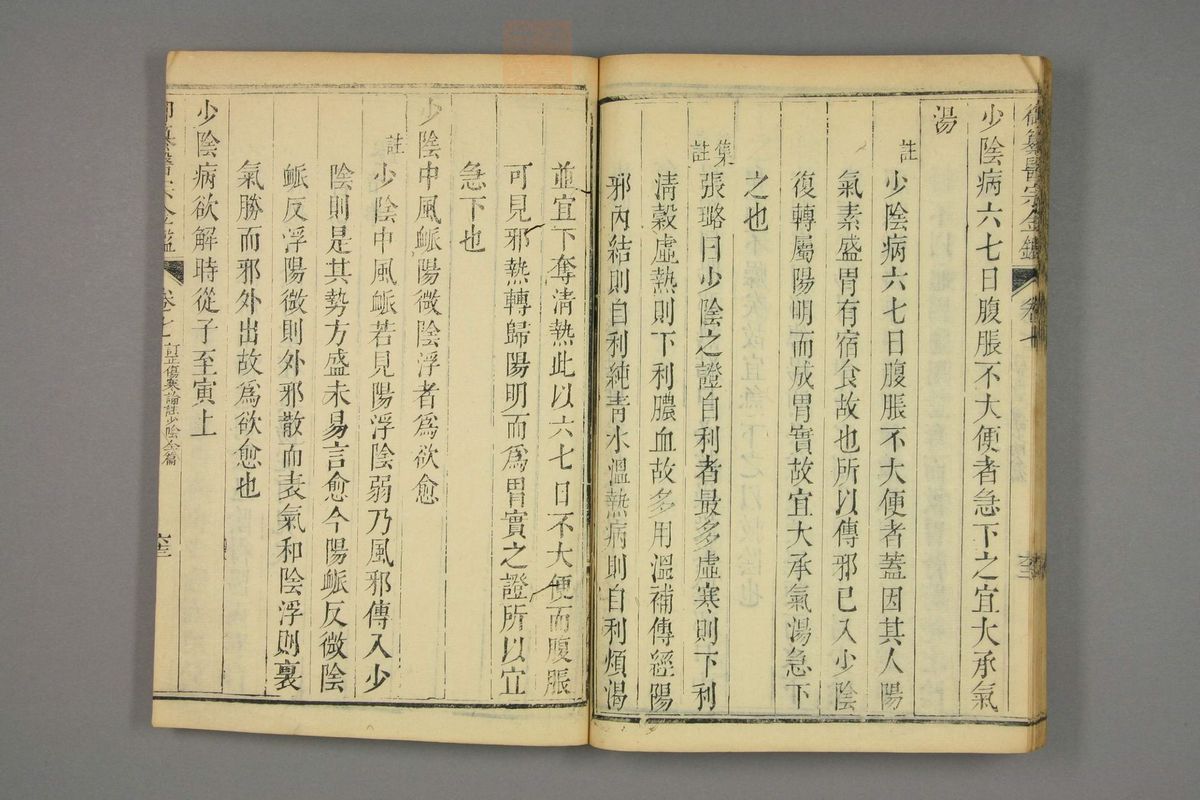 御纂醫宗金鑑 卷七
少陰病六七日腹脹不大便者急下之宜大承氣
湯
註 少陰病六七日腹脹不大便者蓋因其人陽
氣素盛胃有宿食故也所以傳邪已入少陰
復轉屬陽明而成胃實故宜大承氣湯急下
之也
集註 張璐曰少陰之證自利者最多虛寒則下利
清穀虛熱則下利膿血故多用溫補傳經陽
邪內結則自利純青水溫熱病則自利煩渴
並宜下奪清熱此以六七日不大便而腹脹
可見邪熱轉歸陽明而爲胃實之證所以宜
急下也
少陰中風脈陽微陰浮者爲欲愈
註 少陰中風脈若見陽浮陰弱乃風邪傳入少
陰則是其勢方盛未易言愈今陽脈反微陰
脈反浮陽微則外邪散而表氣和陰浮則裏
氣勝而邪外出故爲欲愈也
少陰病欲解時從子至寅上
御纂醫宗金鑑 卷七 訂正傷寒論註少陰全篇